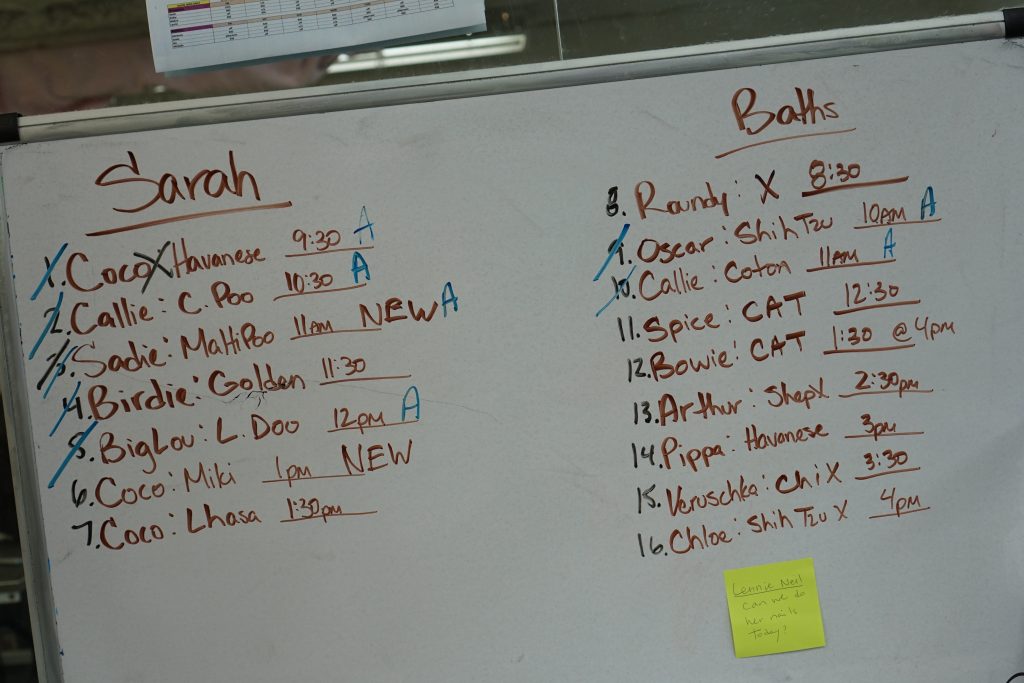 Sarah
1. Coco X Havanese 9:30 A
2. Callie: C. Poo 10:30 A
3. Sadie: MaltiPoo 11AM NEW A
4. Birdie: Golden 11:30
5. BigLou: L. Doo 12pm A
6. Coco: Miki 1pm NEW
7. Coco: Lhasa 1:30pm
Baths
8. Roundy: X 8:30
9. Oscar: Shih Tzu 10AM A
10. Callie: Coton 11AM A
11. Spice: CAT 12:30
12. Bowie: CAT 1:30 @ 4pm
13. Arthur: ShepX 2:30pm
14. Pippa: Havanese 3pm
15. Veruschka: Chi X 3:30
16. Chloe: Shih Tzu X 4pm
Lennie Neil
Can we do
her nails
Today?